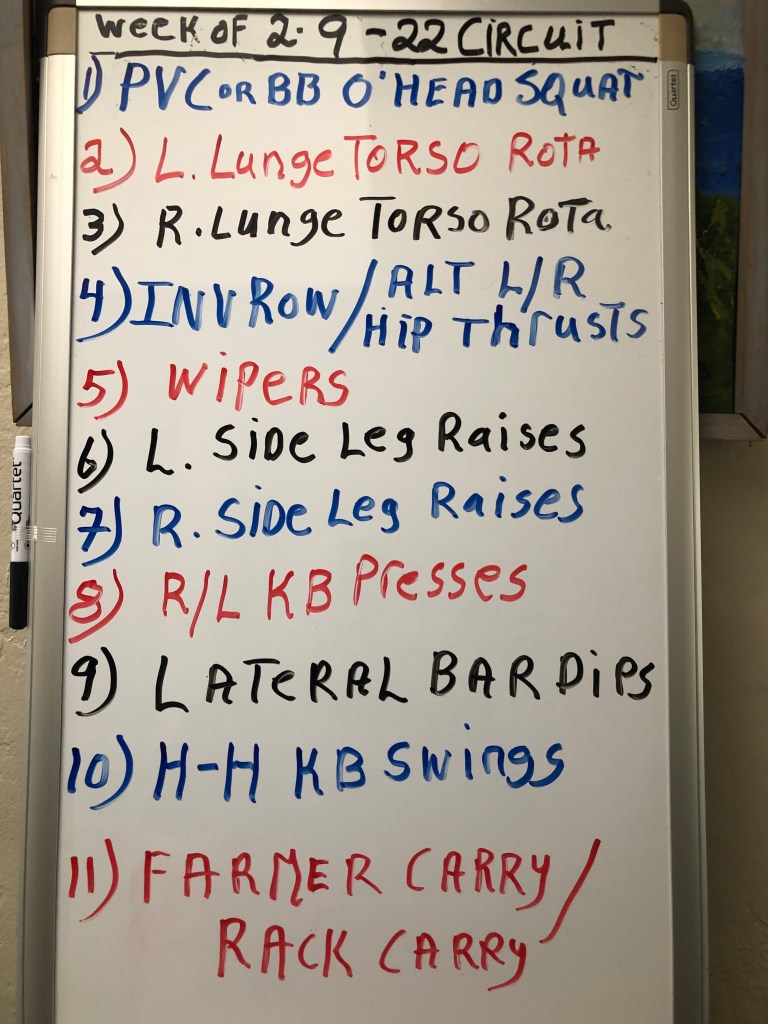 WEEK OF 2.9-22 CIRCUIT
1) PVC OR BB O'HEAD SQUAT
2) L. Lunge TORSO ROTA
3) R. Lunge TORSO ROTA.
4) INV ROW / ALT L/R
HIP Thrusts
5) WIPERS
6) L. SIDE Leg Raises
7) R. SIDE Leg Raises
8) R/L KB Presses
9) LATERAL BAR DIPS
10) H-H KB SWINGS
11) FARMER CARRY /
RACK CARRY
Quartet
Quartet